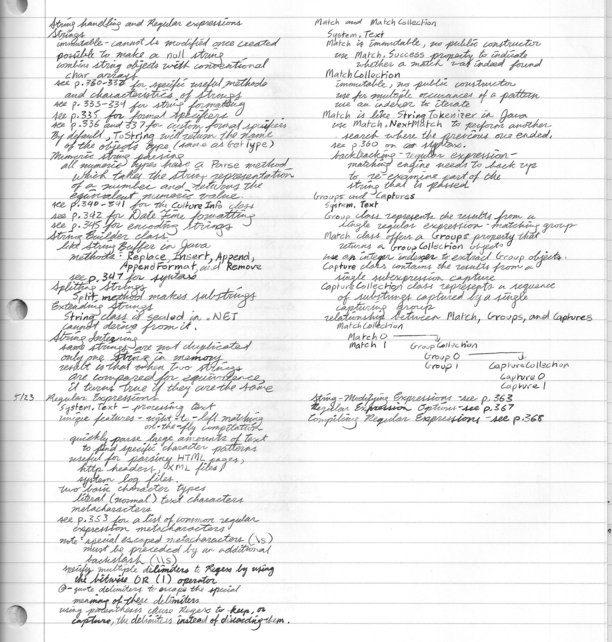 String handling and Regular expressions
Strings
immutable - cannot be modified once created
possible to make a null string
combine string objects with conventional
char arrays
see p.330-332 for specific useful methods
and characteristics of strings
see p.333-334 for string formatting
see p.335 for format specifiers
see p.336 and 337 for custom format specifiers
By default, ToString will return the name
of the objects type (same as GetType)
Numeric string parsing
all numeric types have a Parse method
which takes the string representation
of a number and returns the
equivalent numeric value.
see p.340-341 for the Culture Info class
see p.342 for Date Time formatting
see p.345 for encoding strings
String Builder class
like String Buffer in Java
methods: Replace, Insert, Append,
AppendFormat, and Remove
see p.347 for syntax
Splitting Strings
Split method makes substrings
Extending Strings
String class is sealed in .NET
cannot derive from it.
String Interning
same strings are not duplicated
only one string in memory
result is that when two strings
are compared for equivalence
it turns true if they are the same
5/23 Regular Expressions
System.Text - processing text
unique features - right-to-left matching
on-the-fly compilation
quickly parse large amounts of text
to find specific character patterns
useful for parsing HTML pages,
http headers, XML files,
system log files.
two basic character types
literal (normal) text characters
metacharacters
see p.353 for a list of common regular
expression metacharacters
note: special escaped metacharacters (\s)
must be preceded by an additional
backslash (\\s)
specify multiple delimiters to Regex by using
the bitwise OR (|) operator
@-quote delimiters to escape the special
meaning of these delimiters
using parenthesis cause Regex to keep, or
capture, the delimiters instead of discarding them.
Match and MatchCollection
System.Text
Match is immutable, no public constructor
use Match.Success property to indicate
whether a match was indeed found
MatchCollection
immutable, no public constructor
use for multiple occurances of a pattern
use an indexer to iterate
Match is like String Tokenizer in Java
use Match.NextMatch to perform another
search where the previous one ended,
see p.360 on syntax.
backtracking - regular expression -
matching engine needs to back up
to re-examine part of the
string that is passed
Groups and Captures
System.Text
Group class represents the results from a
single regular expression - matching group
Match class offers a Groups property that
returns a GroupCollection object
use an integer indexer to extract Group objects.
Capture class contains the results from a
single subexpression capture
CaptureCollection class represents a sequence
of substrings captured by a single
capturing group
relationship between Match, Groups, and Captures
MatchCollection
Match 0
Match 1 GroupCollection
Group 0
Group 1 CaptureCollection
Capture 0
Capture 1
String-Modifying Expressions - see p.363
Regular Expression Options - see p.367
Compiling Regular Expressions - see p.368